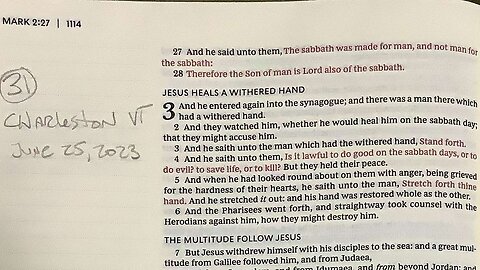 MARK 2:27 | 1114
27 And he said unto them, The sabbath was made for man, and not man for
the sabbath:
28 Therefore the Son of man is Lord also of the sabbath.
JESUS HEALS A WITHERED HAND
3 And he entered again into the synagogue; and there was a man there which
had a withered hand.
2 And they watched him, whether he would heal him on the sabbath day;
that they might accuse him.
3 And he saith unto the man which had the withered hand, Stand forth.
4 And he saith unto them, Is it lawful to do good on the sabbath days, or to
do evil? to save life, or to kill? But they held their peace.
5 And when he had looked round about on them with anger, being grieved
for the hardness of their hearts, he saith unto the man, Stretch forth thine
hand. And he stretched it out: and his hand was restored whole as the other.
6 And the Pharisees went forth, and straightway took counsel with the
Herodians against him, how they might destroy him.
THE MULTITUDE FOLLOW JESUS
7 But Jesus withdrew himself with his disciples to the sea: and a great mul-
titude from Galilee followed him, and from Judaea,
and from Idumaea, and from beyond Jordan; and
31
CHARLESTON VT
JUNE 25, 2023